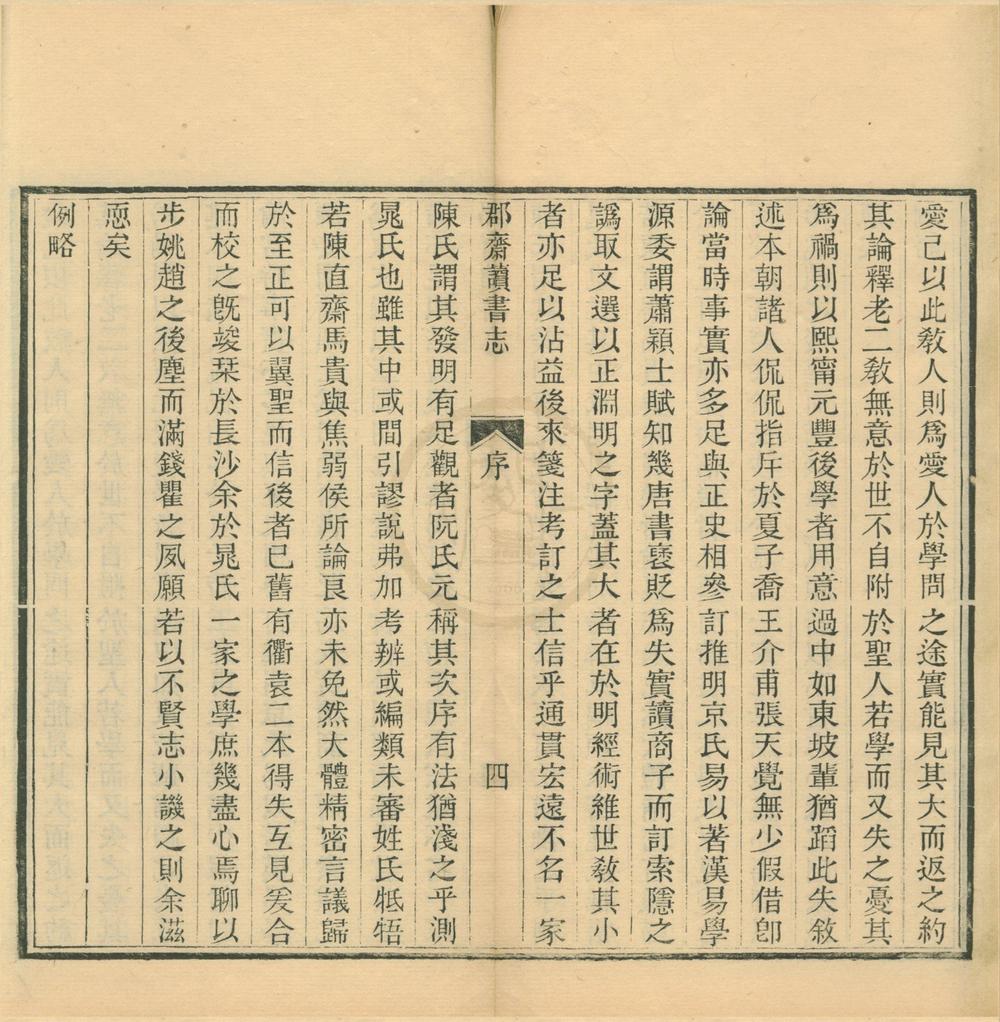 愛己以此敎人則爲愛人於學問之途實能見其大而返之約
其論釋老二敎無意於世不自附於聖人若學而又失之憂其
爲禍則以熙甯元豐後學者用意過中如東坡輩猶蹈此失敘
述本朝諸人侃侃指斥於夏子喬王介甫張天覺無少假借卽
論當時事實亦多足與正史相參訂推明京氏易以著漢易學
源委謂蕭穎士賦知幾唐書褒貶爲失實讀商子而訂索隱之
譌取文選以正淵明之字蓋其大者在於明經術維世敎其小
者亦足以沾益後來箋注考訂之士信乎通貫宏遠不名一家
郡齋讀書志 序 四
陳氏謂其發明有足觀者阮氏元稱其次序有法猶淺之乎測
晁氏也雖其中或間引謬說弗加考辨或編類未審姓氏牴牾
若陳直齋馬貴與焦弱侯所論良亦未免然大體精密言議歸
於至正可以翼聖而信後者已舊有衢袁二本得失互見爰合
而校之旣竣栞於長沙余於晁氏一家之學庶幾盡心焉聊以
步姚趙之後塵而滿錢瞿之夙願若以不賢志小譏之則余滋
恧矣
例略